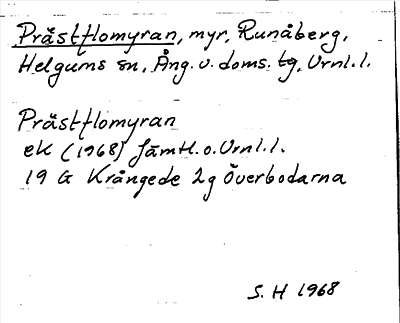 Prästflomyran, myr, Runåberg,
Helgums sn, Ång. v. doms. tg, Vrnl. l.
Prästflomyran
ek (1968) Jämtl. o. Vrnl. l.
19 G Krångede 2g Överbodarna
S. H 1968